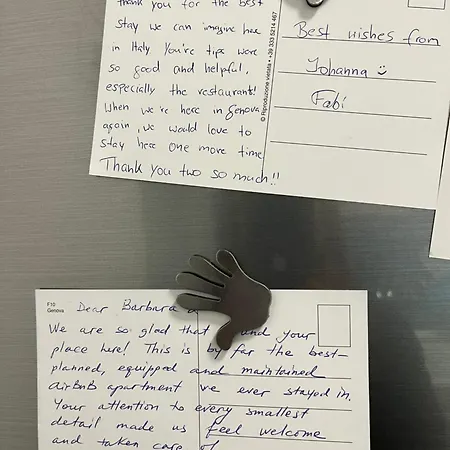 thank you for the best
stay we can imagine here
in Italy You're tips were
so good and helpful,
especially the restaurant!
When we're here in Genova
again, we would love to
stay here one more time
Thank you two so much!!
© Riproduzione vietata • +39 333 5214 467
Best wishes from
Johanna
Fabi
F10
Genova
Dear Barbara
We are so glad that and your
place here! This is by far the best-
planned, equipped and maintained
airbnb apartment 've ever stayed in.
Your attention to every smallest
detail made us feel welcome
and taken care of